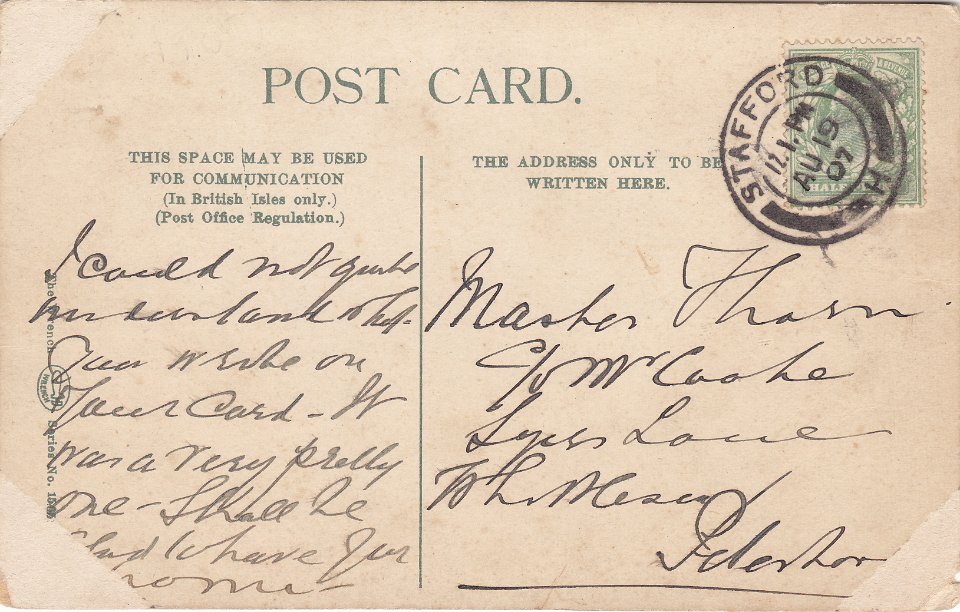 POST CARD.
THIS SPACE MAY BE USED
FOR COMMUNICATION
(In British Isles only.)
(Post Office Regulation.)
THE ADDRESS ONLY TO BE
WRITTEN HERE.
STAFFORD
12.1.PM
AU 19
07
HALF
I could not quite
understand what
you wrote on
your card - It
was a very pretty
one - Shall be
glad to have you
home -
The Wrench
Series No.
Master Thorn
c/o Mr Cooke
Lane
Whittlesey